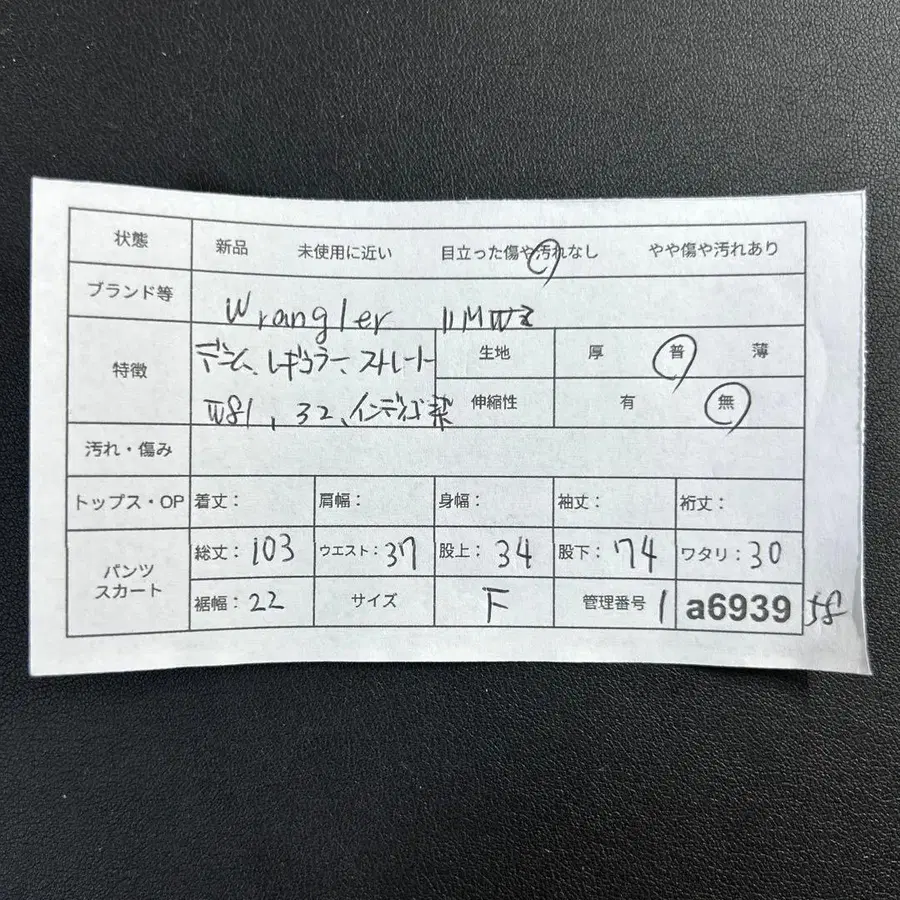 状態 新品 未使用に近い 目立った傷や汚れなし やや傷や汚れあり
ブランド等 Wrangler 11MWZ
特徴 デニム、レギュラー、ストレート 生地 厚 普 薄
W81, 32、インディゴ染 伸縮性 有 無
汚れ・傷み
トップス・OP 着丈： 肩幅： 身幅： 袖丈： 裄丈：
パンツ スカート 総丈：103 ウエスト：37 股上：34 股下：74 ワタリ：30
裾幅：22 サイズ F 管理番号 1 a6939